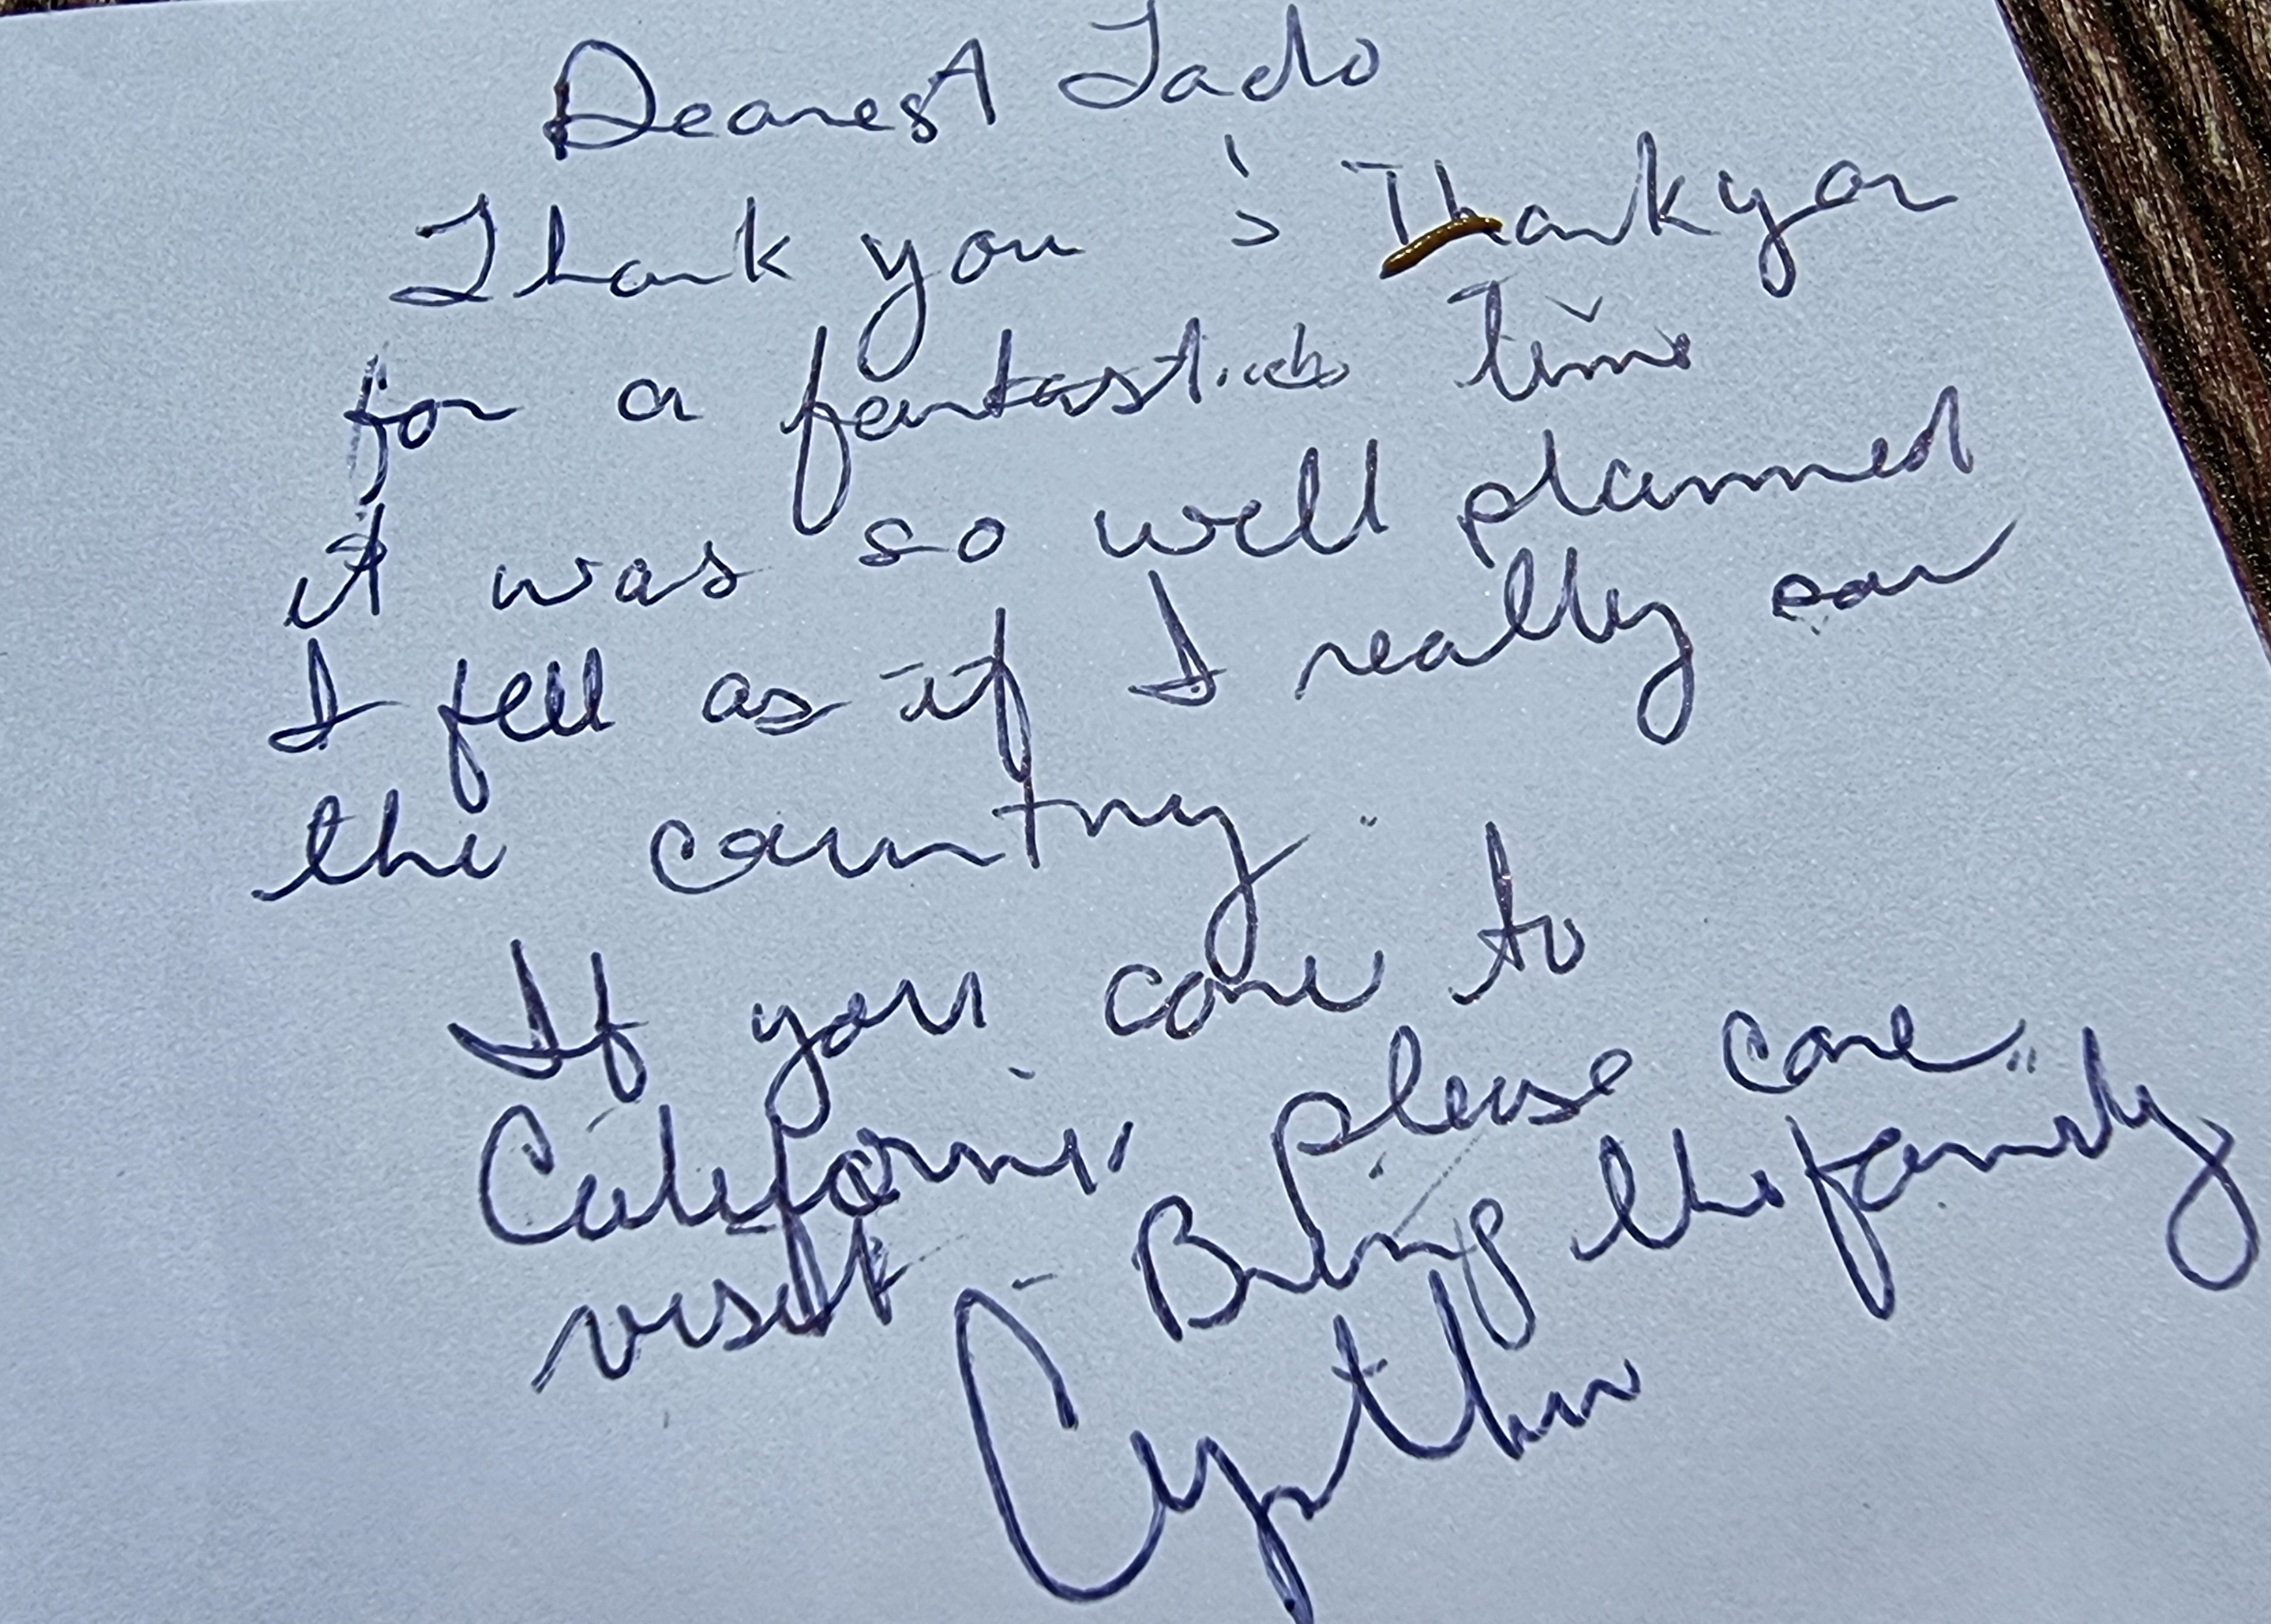 Dearest Tado
Thank you ; Thank you
for a fantastic time
it was so well planned
I fell as if I really saw
the country.
If you come to
California please come
visit - Bring the family
Cynthia